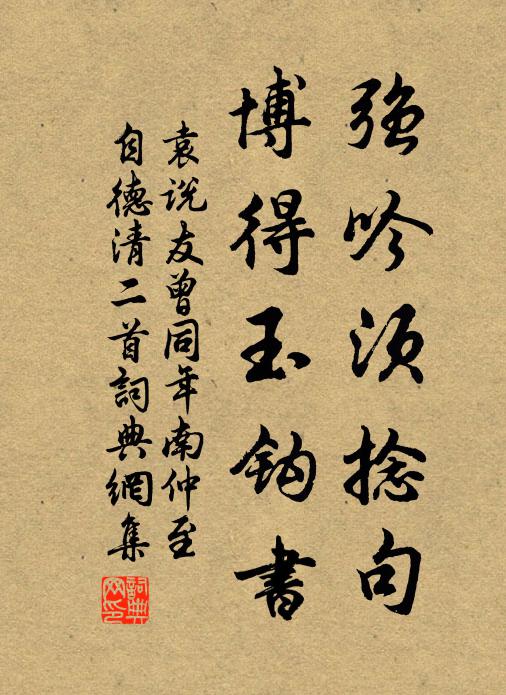 强吟须捻句
博得玉钩書
袁说友曾同年南仲至
自德清二首詞典網集
詞典网印